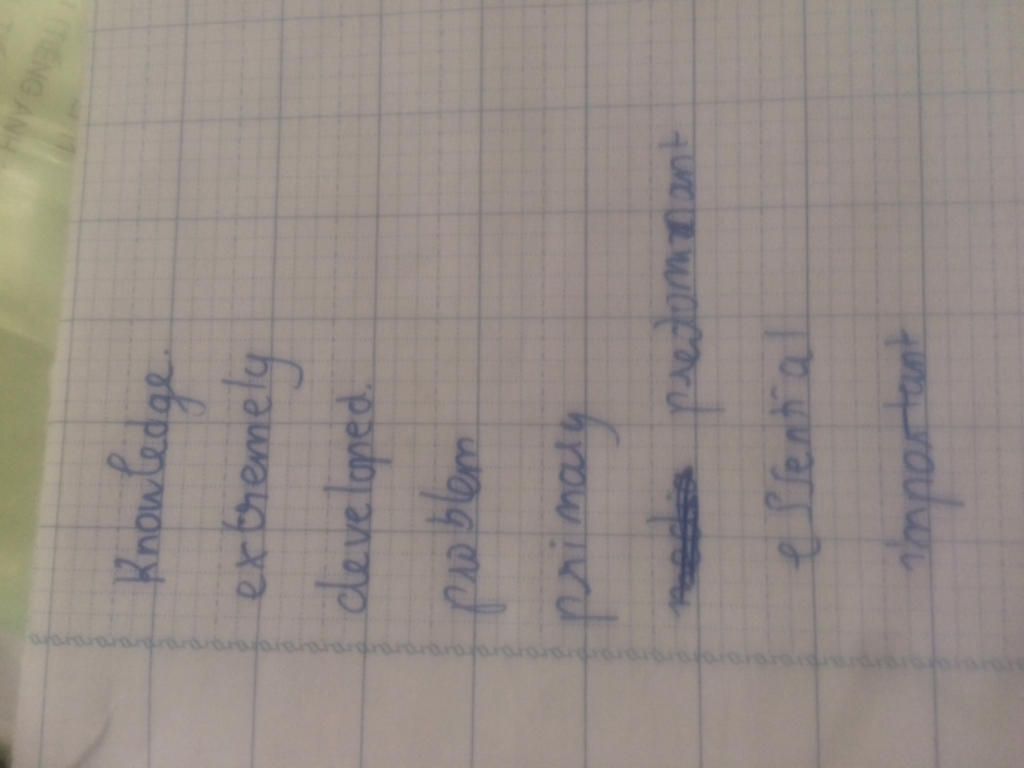 Knowledge.
extremely
developed.
problem
primary
predominant
essential
important
TIẾNG ANH